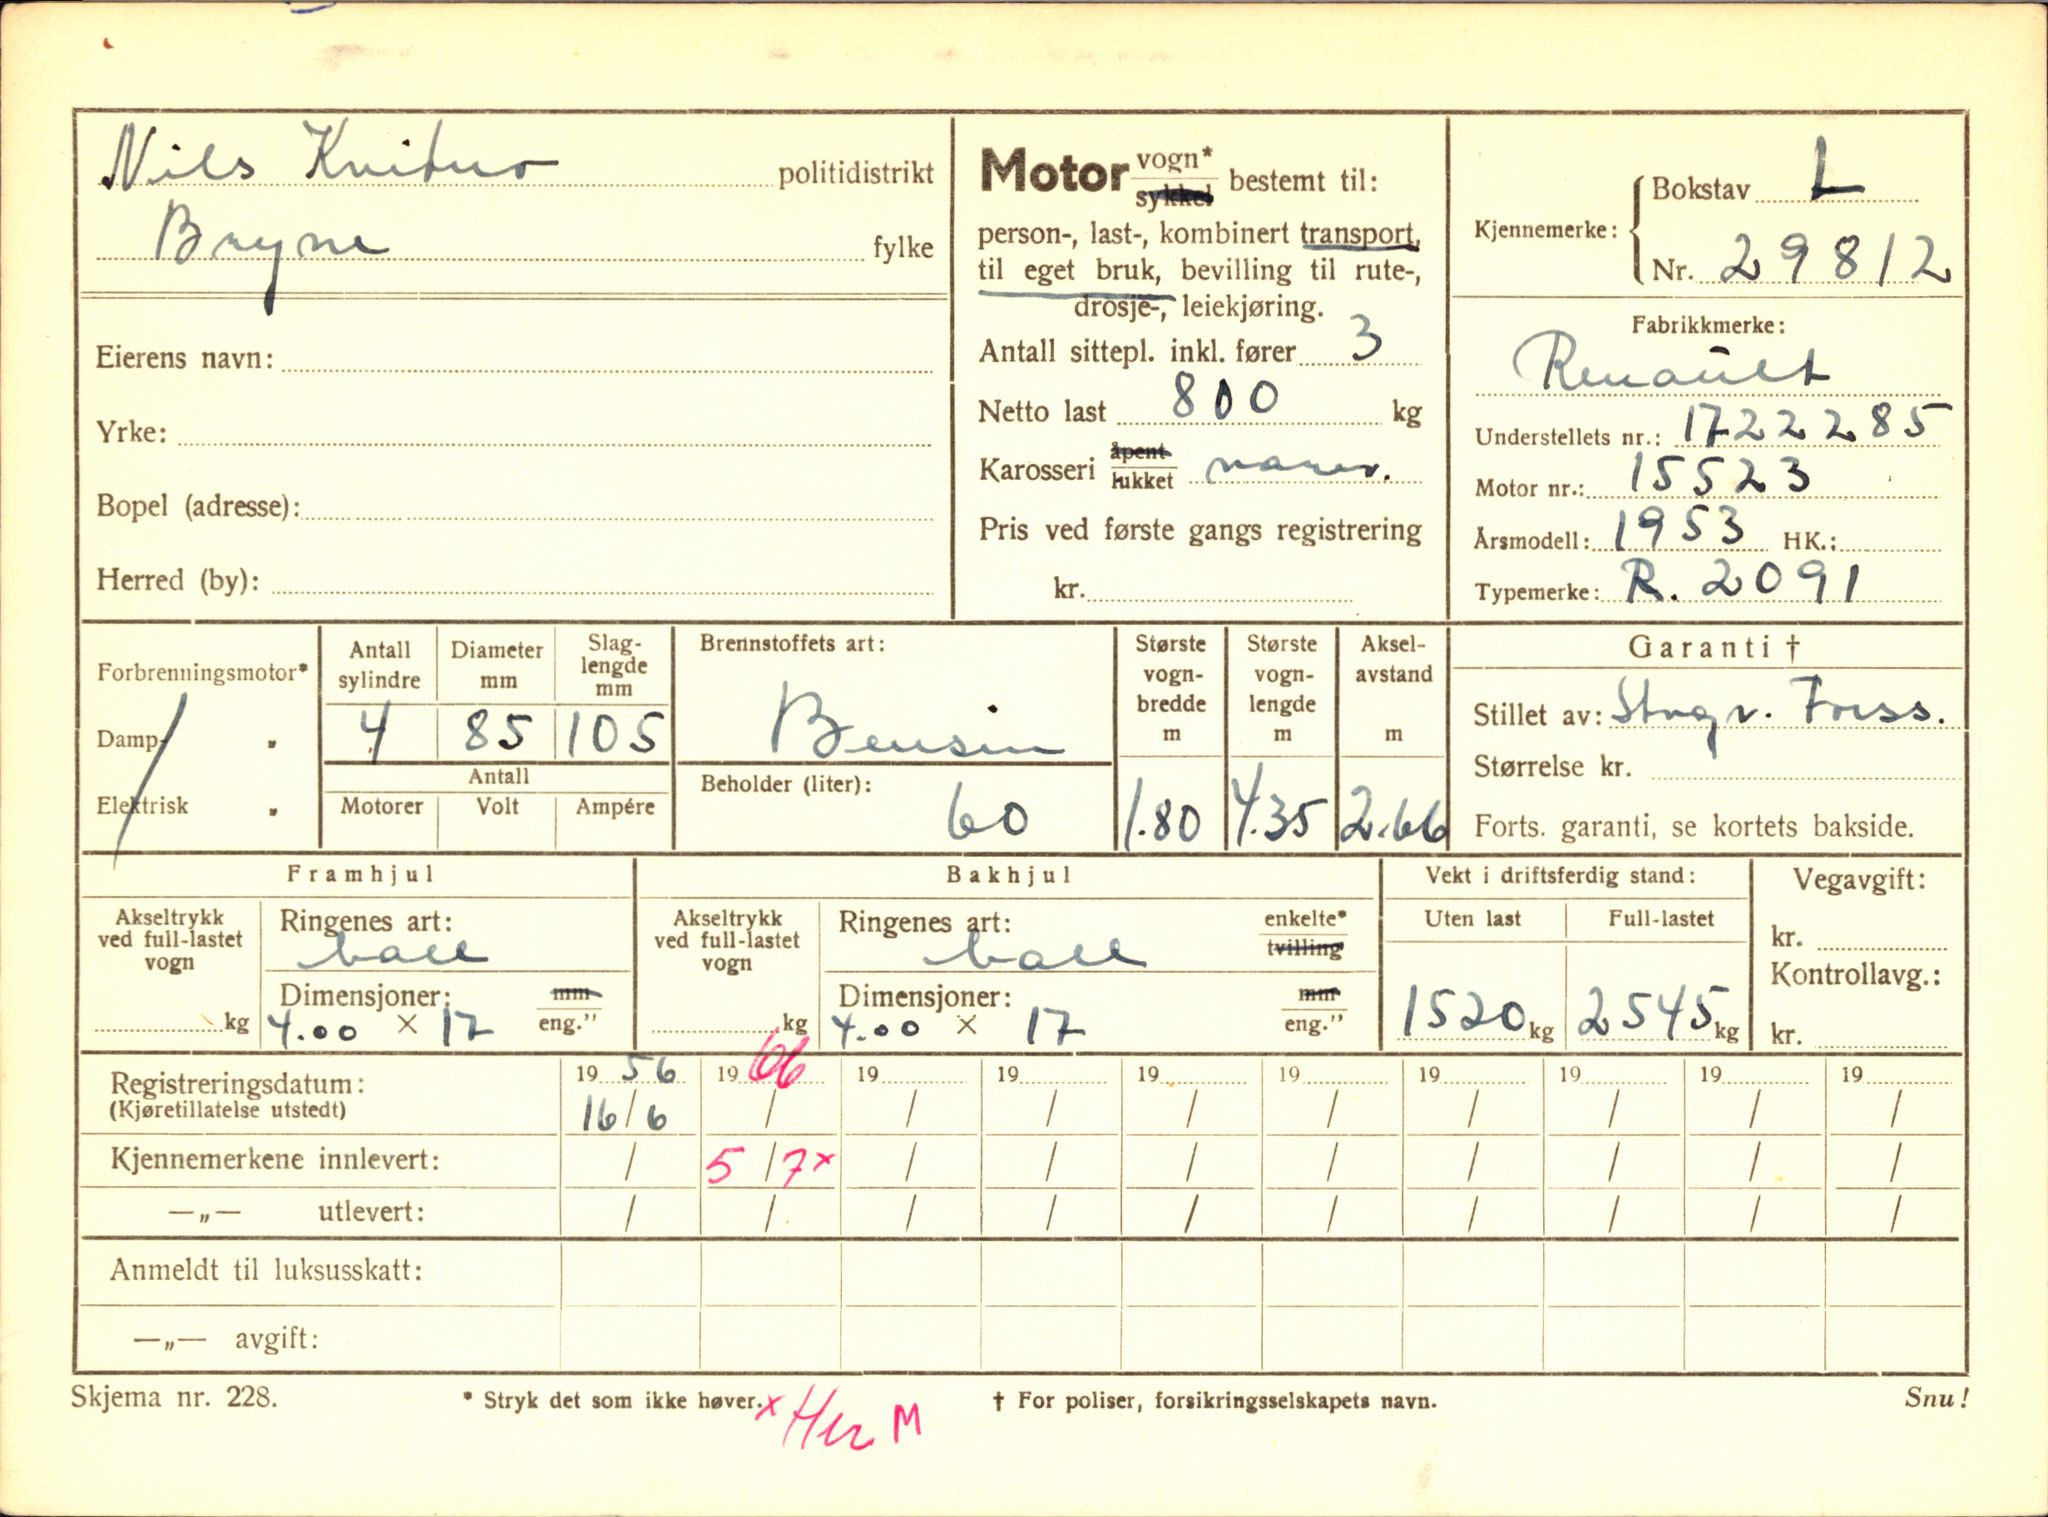 Nils politidistrikt
Bryne fylke
Eierens navn:
Yrke:
Bopel (adresse):
Herred (by):
Motor vogn* sykkel bestemt til:
person-, last-, kombinert transport,
til eget bruk, bevilling til rute-,
drosje-, leiekjøring.
Antall sittepl. inkl. fører 3
Netto last 800 kg
Karosseri åpent lukket varev.
Pris ved første gangs registrering
kr.
Kjennemerke: Bokstav L
Nr. 29812
Fabrikkmerke:
Renault
Understellets nr.: 1722285
Motor nr.: 15523
Årsmodell: 1953 HK.:
Typemerke: R. 2091
Forbrenningsmotor*
Damp- „
Elektrisk „
Antall sylindre 4
Diameter mm 85
Slag-lengde mm 105
Antall
Motorer Volt Ampére
Brennstoffets art:
Bensin
Beholder (liter):
60
Største vogn-bredde m 1.80
Største vogn-lengde m 4.35
Aksel-avstand m 2.66
Garanti †
Stillet av: Forss.
Størrelse kr.
Forts. garanti, se kortets bakside.
Framhjul
Akseltrykk ved full-lastet vogn
kg
Ringenes art:
ball
Dimensjoner: mm eng.”
4.00 × 17
Bakhjul
Akseltrykk ved full-lastet vogn
kg
Ringenes art: enkelte* tvilling
ball
Dimensjoner: mm eng.”
4.00 × 17
Vekt i driftsferdig stand:
Uten last Full-lastet
1520 kg 2545 kg
Vegavgift:
kr.
Kontrollavg.:
kr.
Registreringsdatum: 19 56 19 66 19 19 19 19 19 19 19 19
(Kjøretillatelse utstedt) 16/6 / / / / / / / / /
Kjennemerkene innlevert: / 5/7x / / / / / / / /
—„— utlevert: / / / / / / / / / /
Anmeldt til luksusskatt:
—„— avgift:
Skjema nr. 228. * Stryk det som ikke høver. † For poliser, forsikringsselskapets navn. Snu!
x Her M